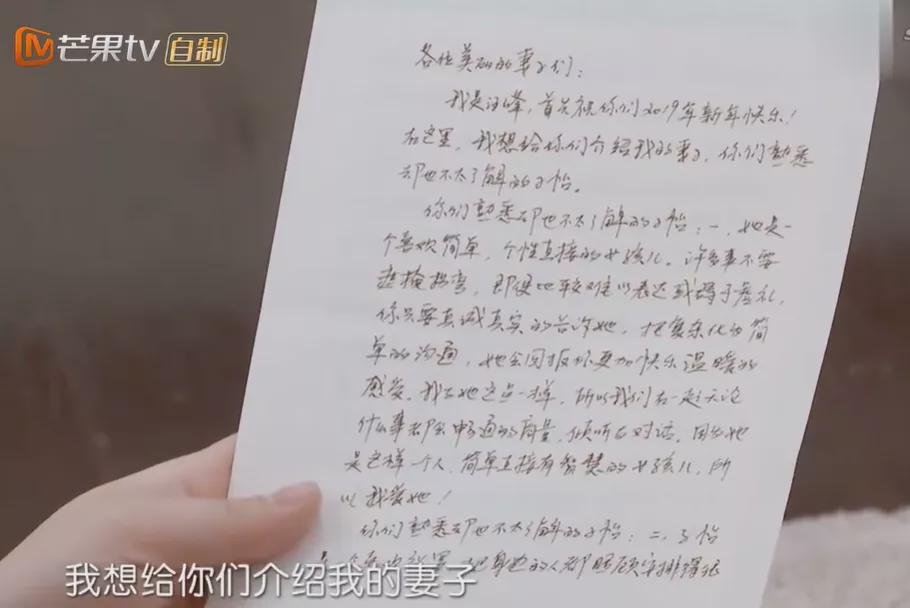 芒果tv 自制
各位英雄的妻子们：
我是汪峰，首先祝你们2019年新年快乐！
在这里，我想给你们介绍我的妻子，你们熟悉
却也不太了解的子怡。
你们熟悉却也不太了解的子怡：一、她是一
个喜欢简单，个性直接的女孩儿。许多事不要
遮掩拐弯，即便比较难以表达或碍于虚礼，
你只要真诚真实的告诉她，把复杂化为简
单的沟通，她会回报你更加快乐温暖的
感受。我与她这点一样，所以我们在一起无论
什么事都会畅通的商量，倾听与对话。因为她
是这样一个人，简单直接有智慧的女孩儿，所
以我爱她！
你们熟悉却也不太了解的子怡：二、子怡
把身边的人都照顾安排得很
我想给你们介绍我的妻子